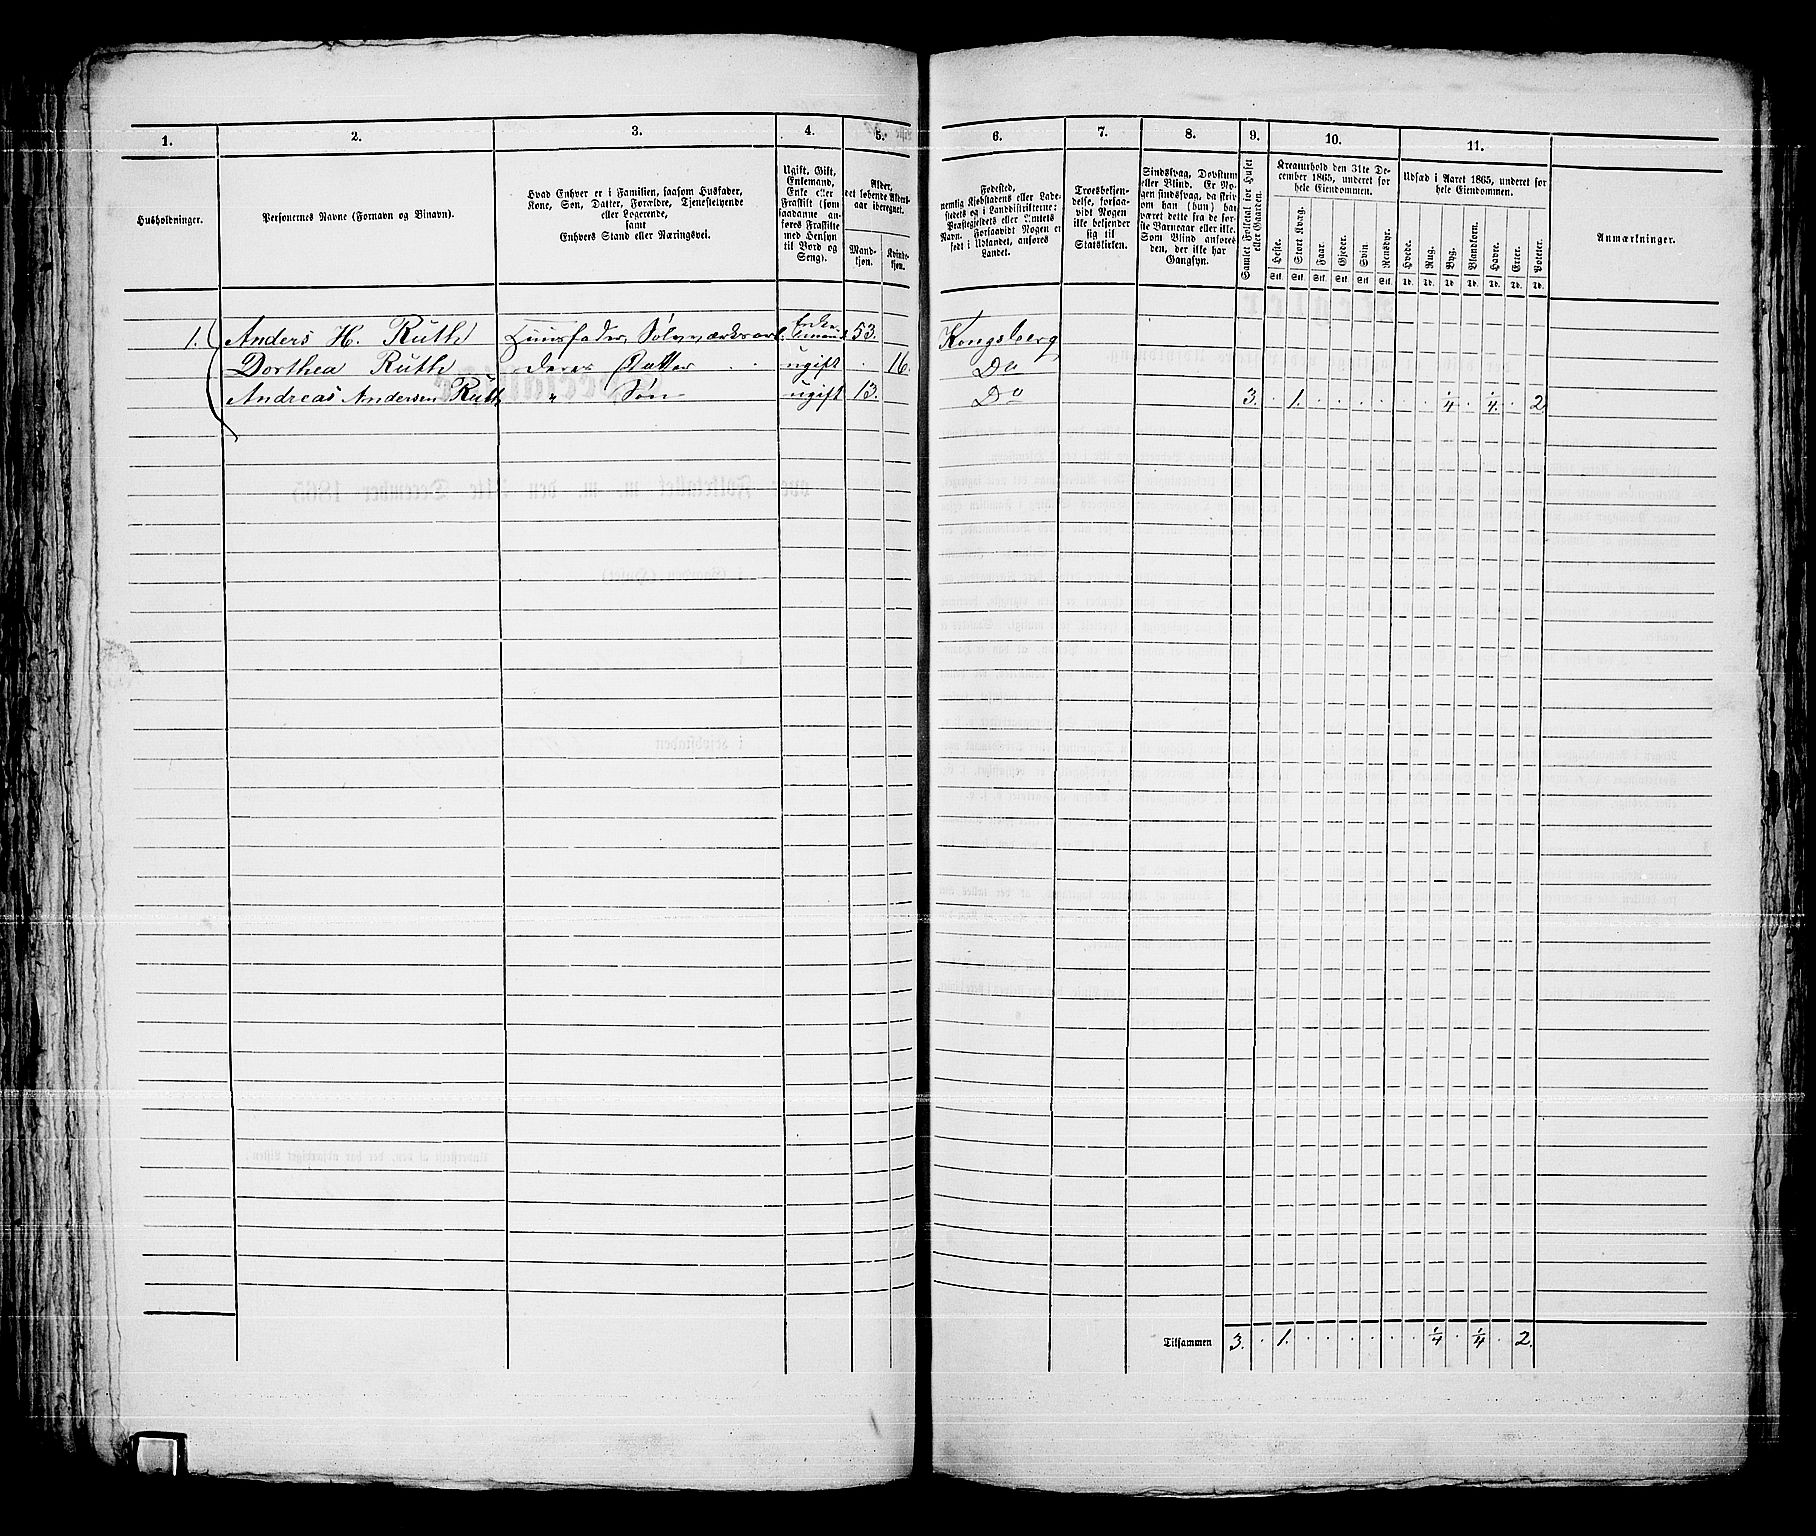 1.
2.
3.
4.
5.
6.
7.
8.
9.
10.
11.
Husholdninger.
Personernes Navne (Fornavn og Binavn).
Hvad Enhver er i Familien, saasom Husfader,
Kone, Søn, Datter, Forældre, Tjenestetyende
eller Logerende,
samt
Enhvers Stand eller Næringsvei.
Ugift, Gift,
Enkemand,
Enke eller
Fraskilt (som
saadanne an-
føres Fraskilte
med Hensyn
til Bord og
Seng).
Alder,
det løbende Alders-
aar iberegnet.
Mand-
kjøn.
Kvinde-
kjøn.
Fødested,
nemlig Kjøbstadens eller Lade-
stedets og i Landdistrikterne:
Præstegjeldets eller Amtets
Navn. Forsaavidt Nogen er
født i Udlandet, anføres
Landet.
Troesbekjen-
delse, forsaa-
vidt Nogen
ikke bekjender
sig til
Statskirken.
Sindssvag, Døvstum
eller Blind. Er No-
gen sindssvag, da skriv
om han (hun) har
været dette fra de for-
ste Barneaar eller ille.
Som Blind anføres
den, der ikke har
Gangsyn.
Samlet Folketal for Huset
eller Gaarden.
Kreaturhold den 31te De-
cember 1865, underet for
hele Eiendommen.
Heste.
Stort Kvæg.
Faar.
Gjeder.
Svin.
Rensdyr.
Stk. Stk. Stk. Stk. Stk. Stk.
Udsæd i Aaret 1865, underet for
hele Eiendommen.
Hvede.
Rug.
Byg.
Blandkorn.
Havre.
Erter.
Poteter.
Td. Td. Td. Td. Td. Td. Td.
Anmærkninger.
1. Anders H. Ruth Huusfader, Sølvværksarb. Enkemand 53. Kongsberg
Dorthea Ruth deres Datter ugift 16. Do
Andreas Andersen Ruth " Søn ugift 13. Do 3. 1. 1/4 1/4 2
Tilsammen 3. 1. 1/4 1/4 2.